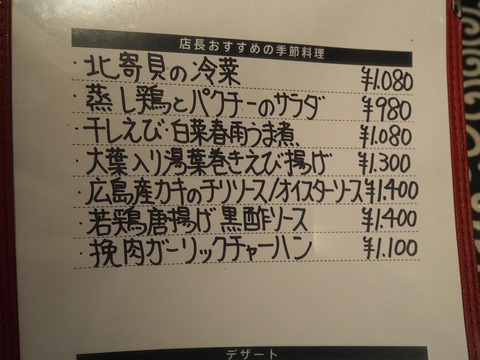 店長おすすめの季節料理
・北寄貝の冷菜 ¥1.080
・蒸し鶏とパクチーのサラダ ¥980
・干しえび・白菜春雨うま煮 ¥1.080
・大葉入り湯葉巻きえび揚げ ¥1.300
・広島産カキのチリソース/オイスターソース ¥1.400
・若鶏唐揚げ黒酢ソース ¥1.400
・挽肉ガーリックチャーハン ¥1.100
デザート